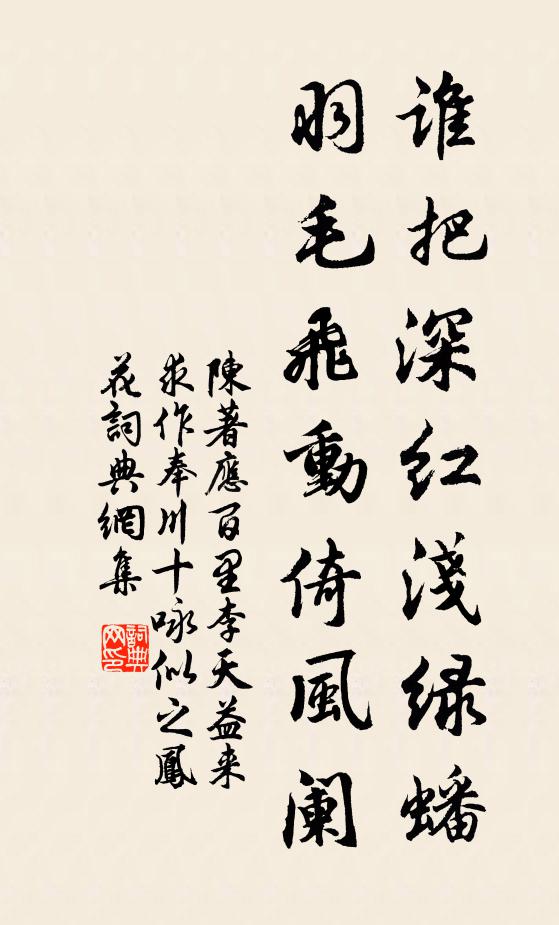 誰把深紅淺綠蟠
羽毛飛動倚風闌
陳著應百里李天益来
求作奉川十咏似之鳳
花詞典網集
詞典网印